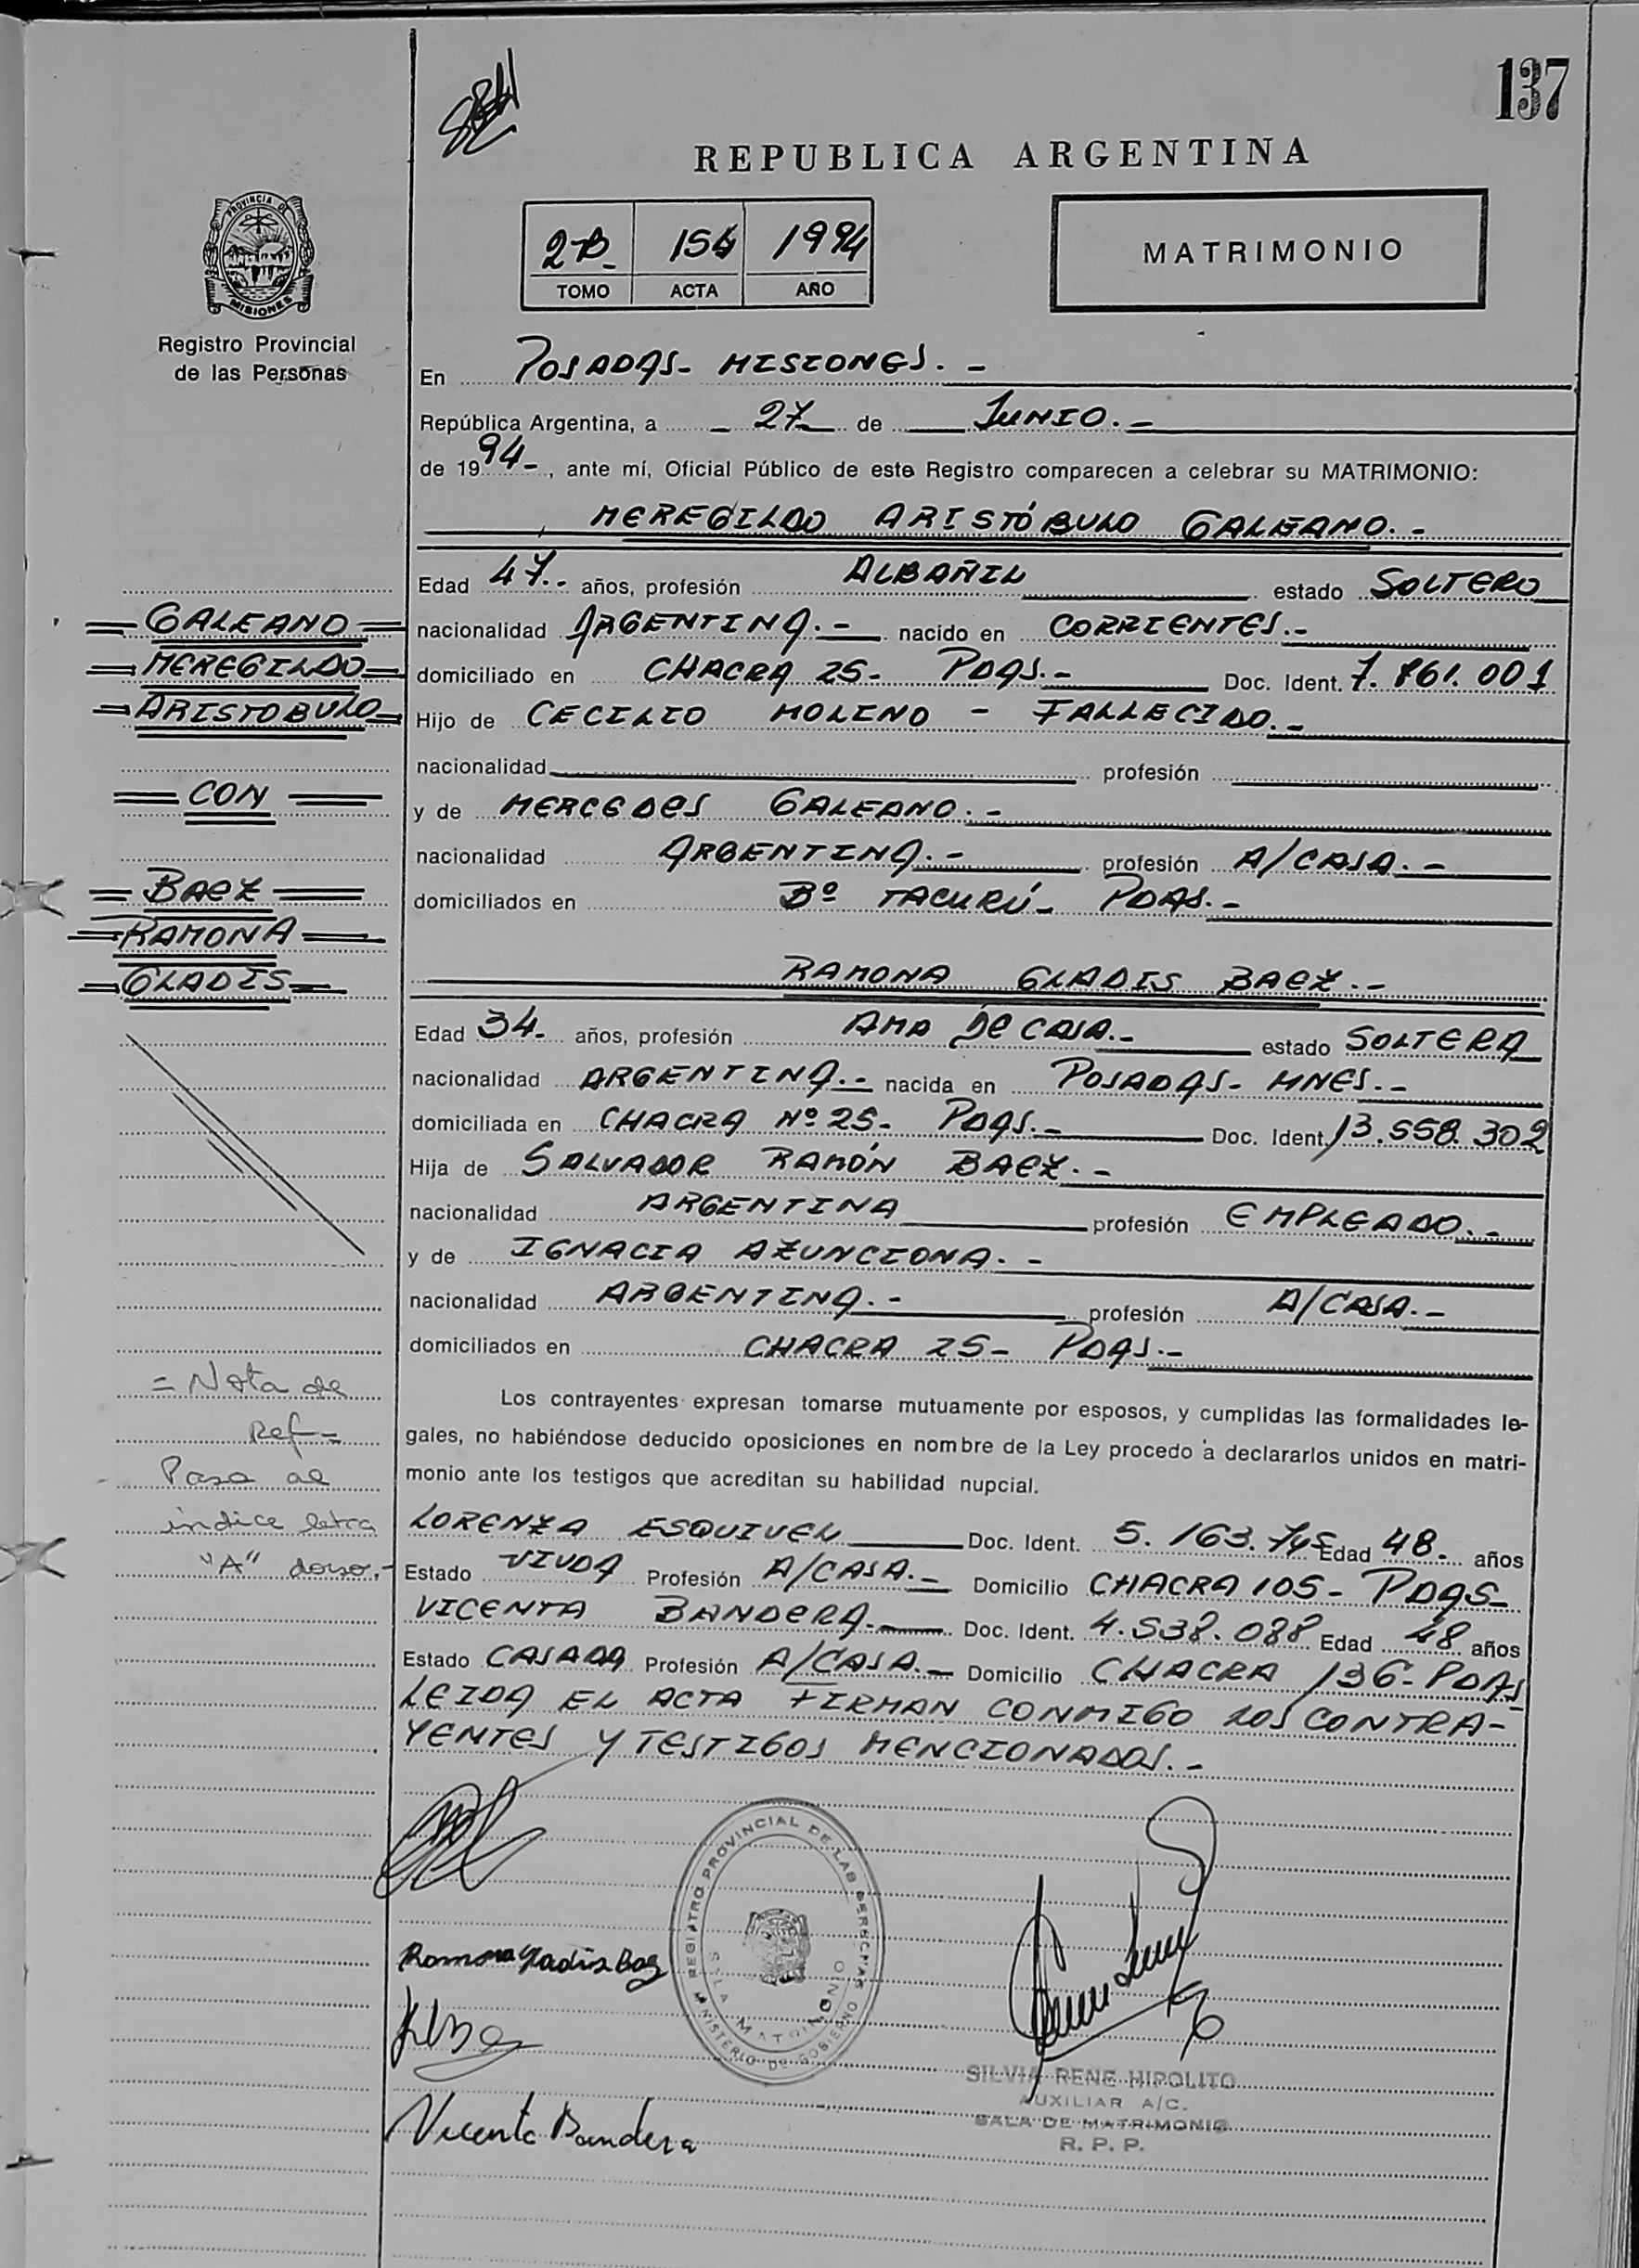 137
REPUBLICA ARGENTINA
PROVINCIA DE MISIONES
Registro Provincial
de las Personas
2-B 154 1994
TOMO ACTA AÑO
MATRIMONIO
En POSADAS- MISIONES.-
República Argentina, a - 27 de JUNIO.-
de 1994-, ante mí, Oficial Público de este Registro comparecen a celebrar su MATRIMONIO:
MEREGILDO ARISTÓBULO GALEANO.-
Edad 47.- años, profesión ALBAÑIL estado SOLTERO
nacionalidad ARGENTINA.- nacido en CORRIENTES.-
domiciliado en CHACRA 25- PDAS.- Doc. Ident. 7.861.001
Hijo de CECILIO MOLINO - FALLECIDO.-
nacionalidad profesión
y de MERCEDES GALEANO.-
nacionalidad ARGENTINA.- profesión A/CASA.-
domiciliados en Bº TACURÚ- PDAS.-
RAMONA GLADIS BAEZ.-
Edad 34- años, profesión AMA DE CASA.- estado SOLTERA
nacionalidad ARGENTINA.- nacida en POSADAS- MNES.-
domiciliada en CHACRA Nº 25- PDAS.- Doc. Ident. 13.558.302
Hija de SALVADOR RAMÓN BAEZ.-
nacionalidad ARGENTINA profesión EMPLEADO.-
y de IGNACIA AZUNCIONA.-
nacionalidad ARGENTINA.- profesión A/CASA.-
domiciliados en CHACRA 25- PDAS.-
Los contrayentes expresan tomarse mutuamente por esposos, y cumplidas las formalidades le-
gales, no habiéndose deducido oposiciones en nombre de la Ley procedo a declararlos unidos en matri-
monio ante los testigos que acreditan su habilidad nupcial.
LORENZA ESQUIVEL Doc. Ident. 5.163.745 Edad 48.- años
Estado VIUDA Profesión A/CASA.- Domicilio CHACRA 105- PDAS-
VICENTA BANDERA.- Doc. Ident. 4.538.088 Edad 48 años
Estado CASADA Profesión A/CASA.- Domicilio CHACRA 136- PDAS
LEIDA EL ACTA FIRMAN CONMIGO LOS CONTRA-
YENTES Y TESTIGOS MENCIONADOS.-
= GALEANO =
= MEREGILDO =
= ARISTOBULO =
= CON =
= BAEZ =
= RAMONA =
= GLADIS =
= Nota de
Ref =
Pasa al
indice letra
"A" dorso.-
Ramona Gladis Baez
Vicenta Bandera
REGISTRO PROVINCIAL DE LAS PERSONAS
MINISTERIO DE GOBIERNO
SALA MATRIMONIO
SILVIA RENE HIPOLITO
AUXILIAR A/C.
SALA DE MATRIMONIO
R. P. P.